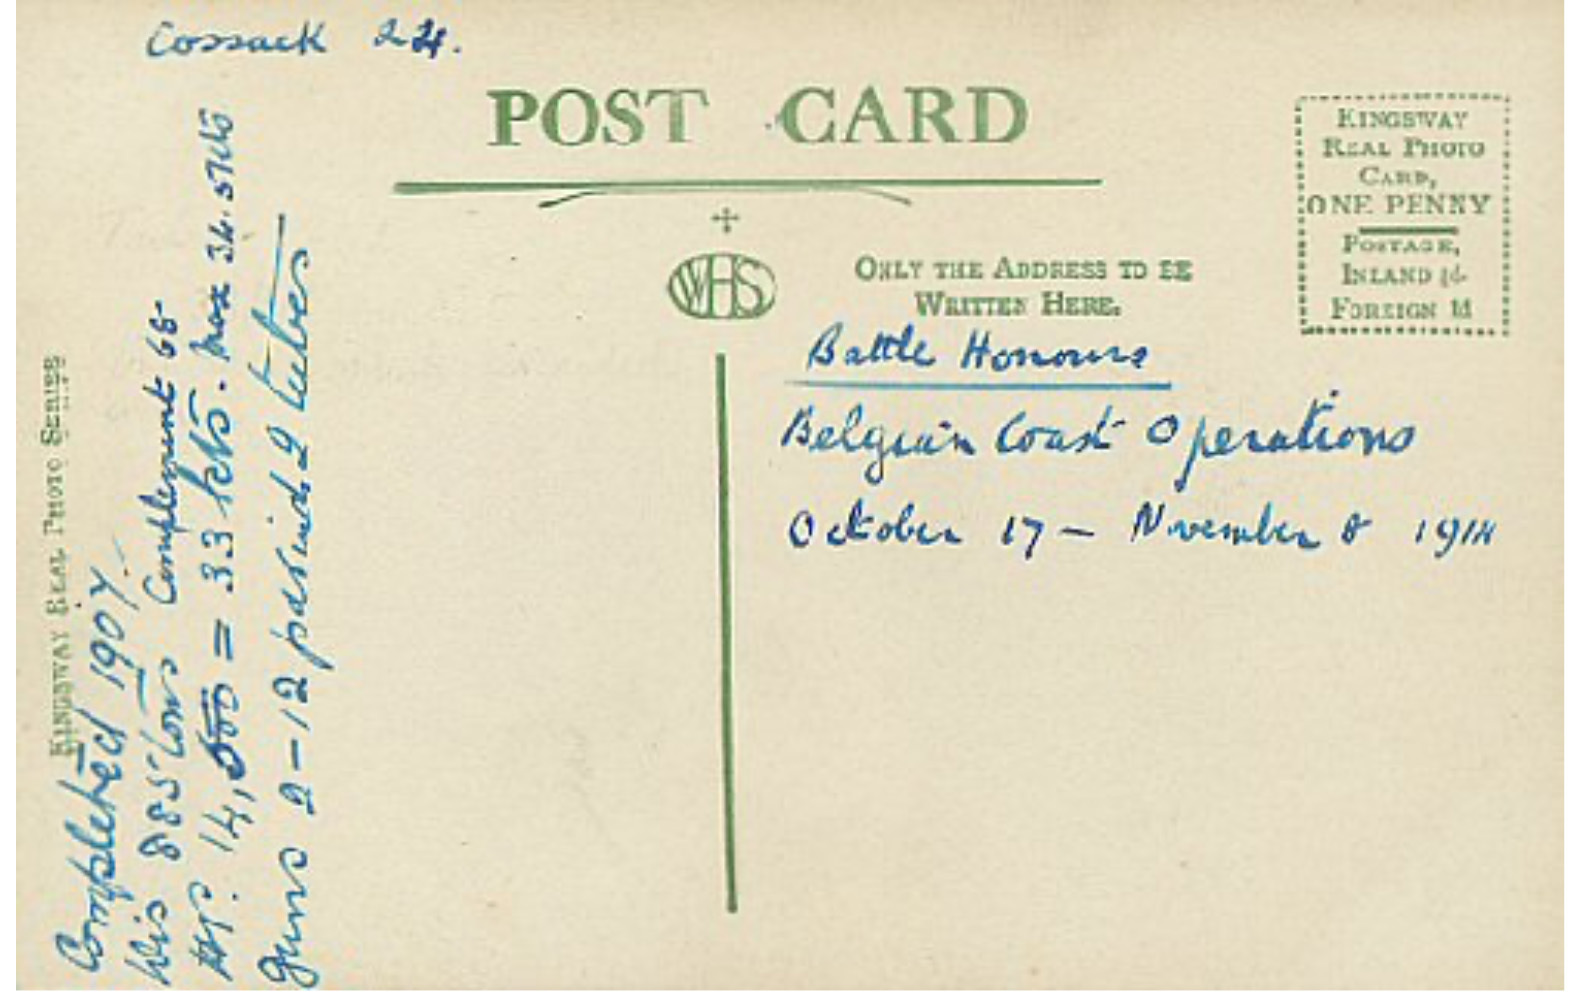 Cossack 24.
POST CARD
KINGSWAY
REAL PHOTO
CARD,
ONE PENNY
POSTAGE,
INLAND ½d.
FOREIGN 1d
WHS
ONLY THE ADDRESS TO BE
WRITTEN HERE.
Battle Honours
Belgian Coast Operations
October 17 - November 8 1914
KINGSWAY REAL PHOTO SERIES
Completed 1907.
Dis 885 tons Complement 68
HP. 14,000 = 33 kts. Max 34.
Guns 2-12 pdr 2 tubes